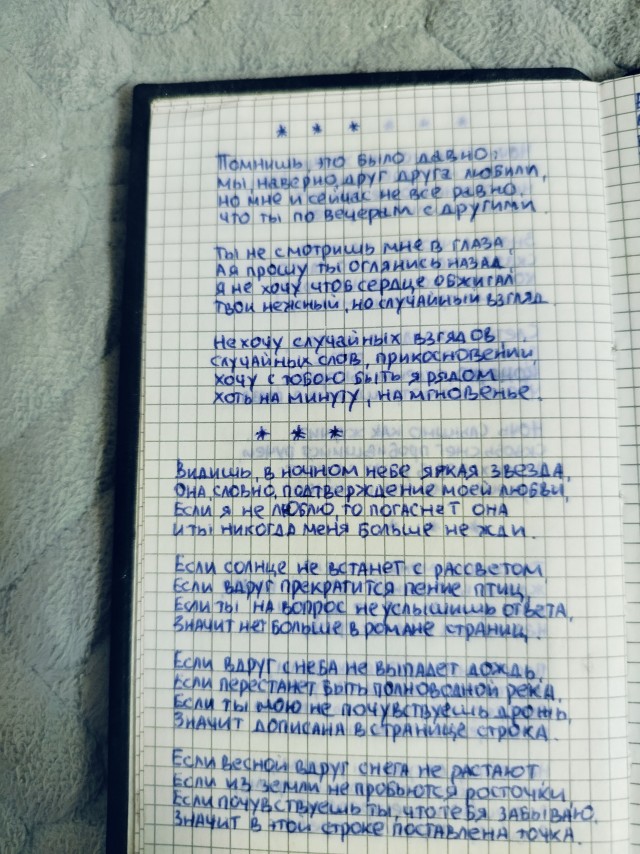 * * *
Помнишь, это было давно:
мы, наверно, друг друга любили,
но мне и сейчас не все равно,
что ты по вечерам с другими.
Ты не смотришь мне в глаза,
А я прошу ты оглянись назад
Я не хочу чтоб сердце обжигал
твой нежный, но случайный взгляд
Не хочу случайных взглядов,
случайных слов, прикосновений,
хочу с тобою быть я рядом
хоть на минуту, на мгновенье.
* * *
Видишь, в ночном небе яркая звезда,
Она, словно, подтверждение моей любви,
Если я не люблю, то погаснет она
и ты никогда меня больше не жди.
Если солнце не встанет с рассветом
Если вдруг прекратится пение птиц,
Если ты на вопрос не услышишь ответа,
Значит нет больше в романе страниц.
Если вдруг с неба не выпадет дождь,
Если перестанет быть полноводной река,
Если ты мою не почувствуешь дрожь,
Значит дописана в странице строка.
Если весной вдруг снега не растают
Если из земли не пробьются росточки,
Если почувствуешь ты, что тебя забываю,
Значит в этой строке поставлена точка.